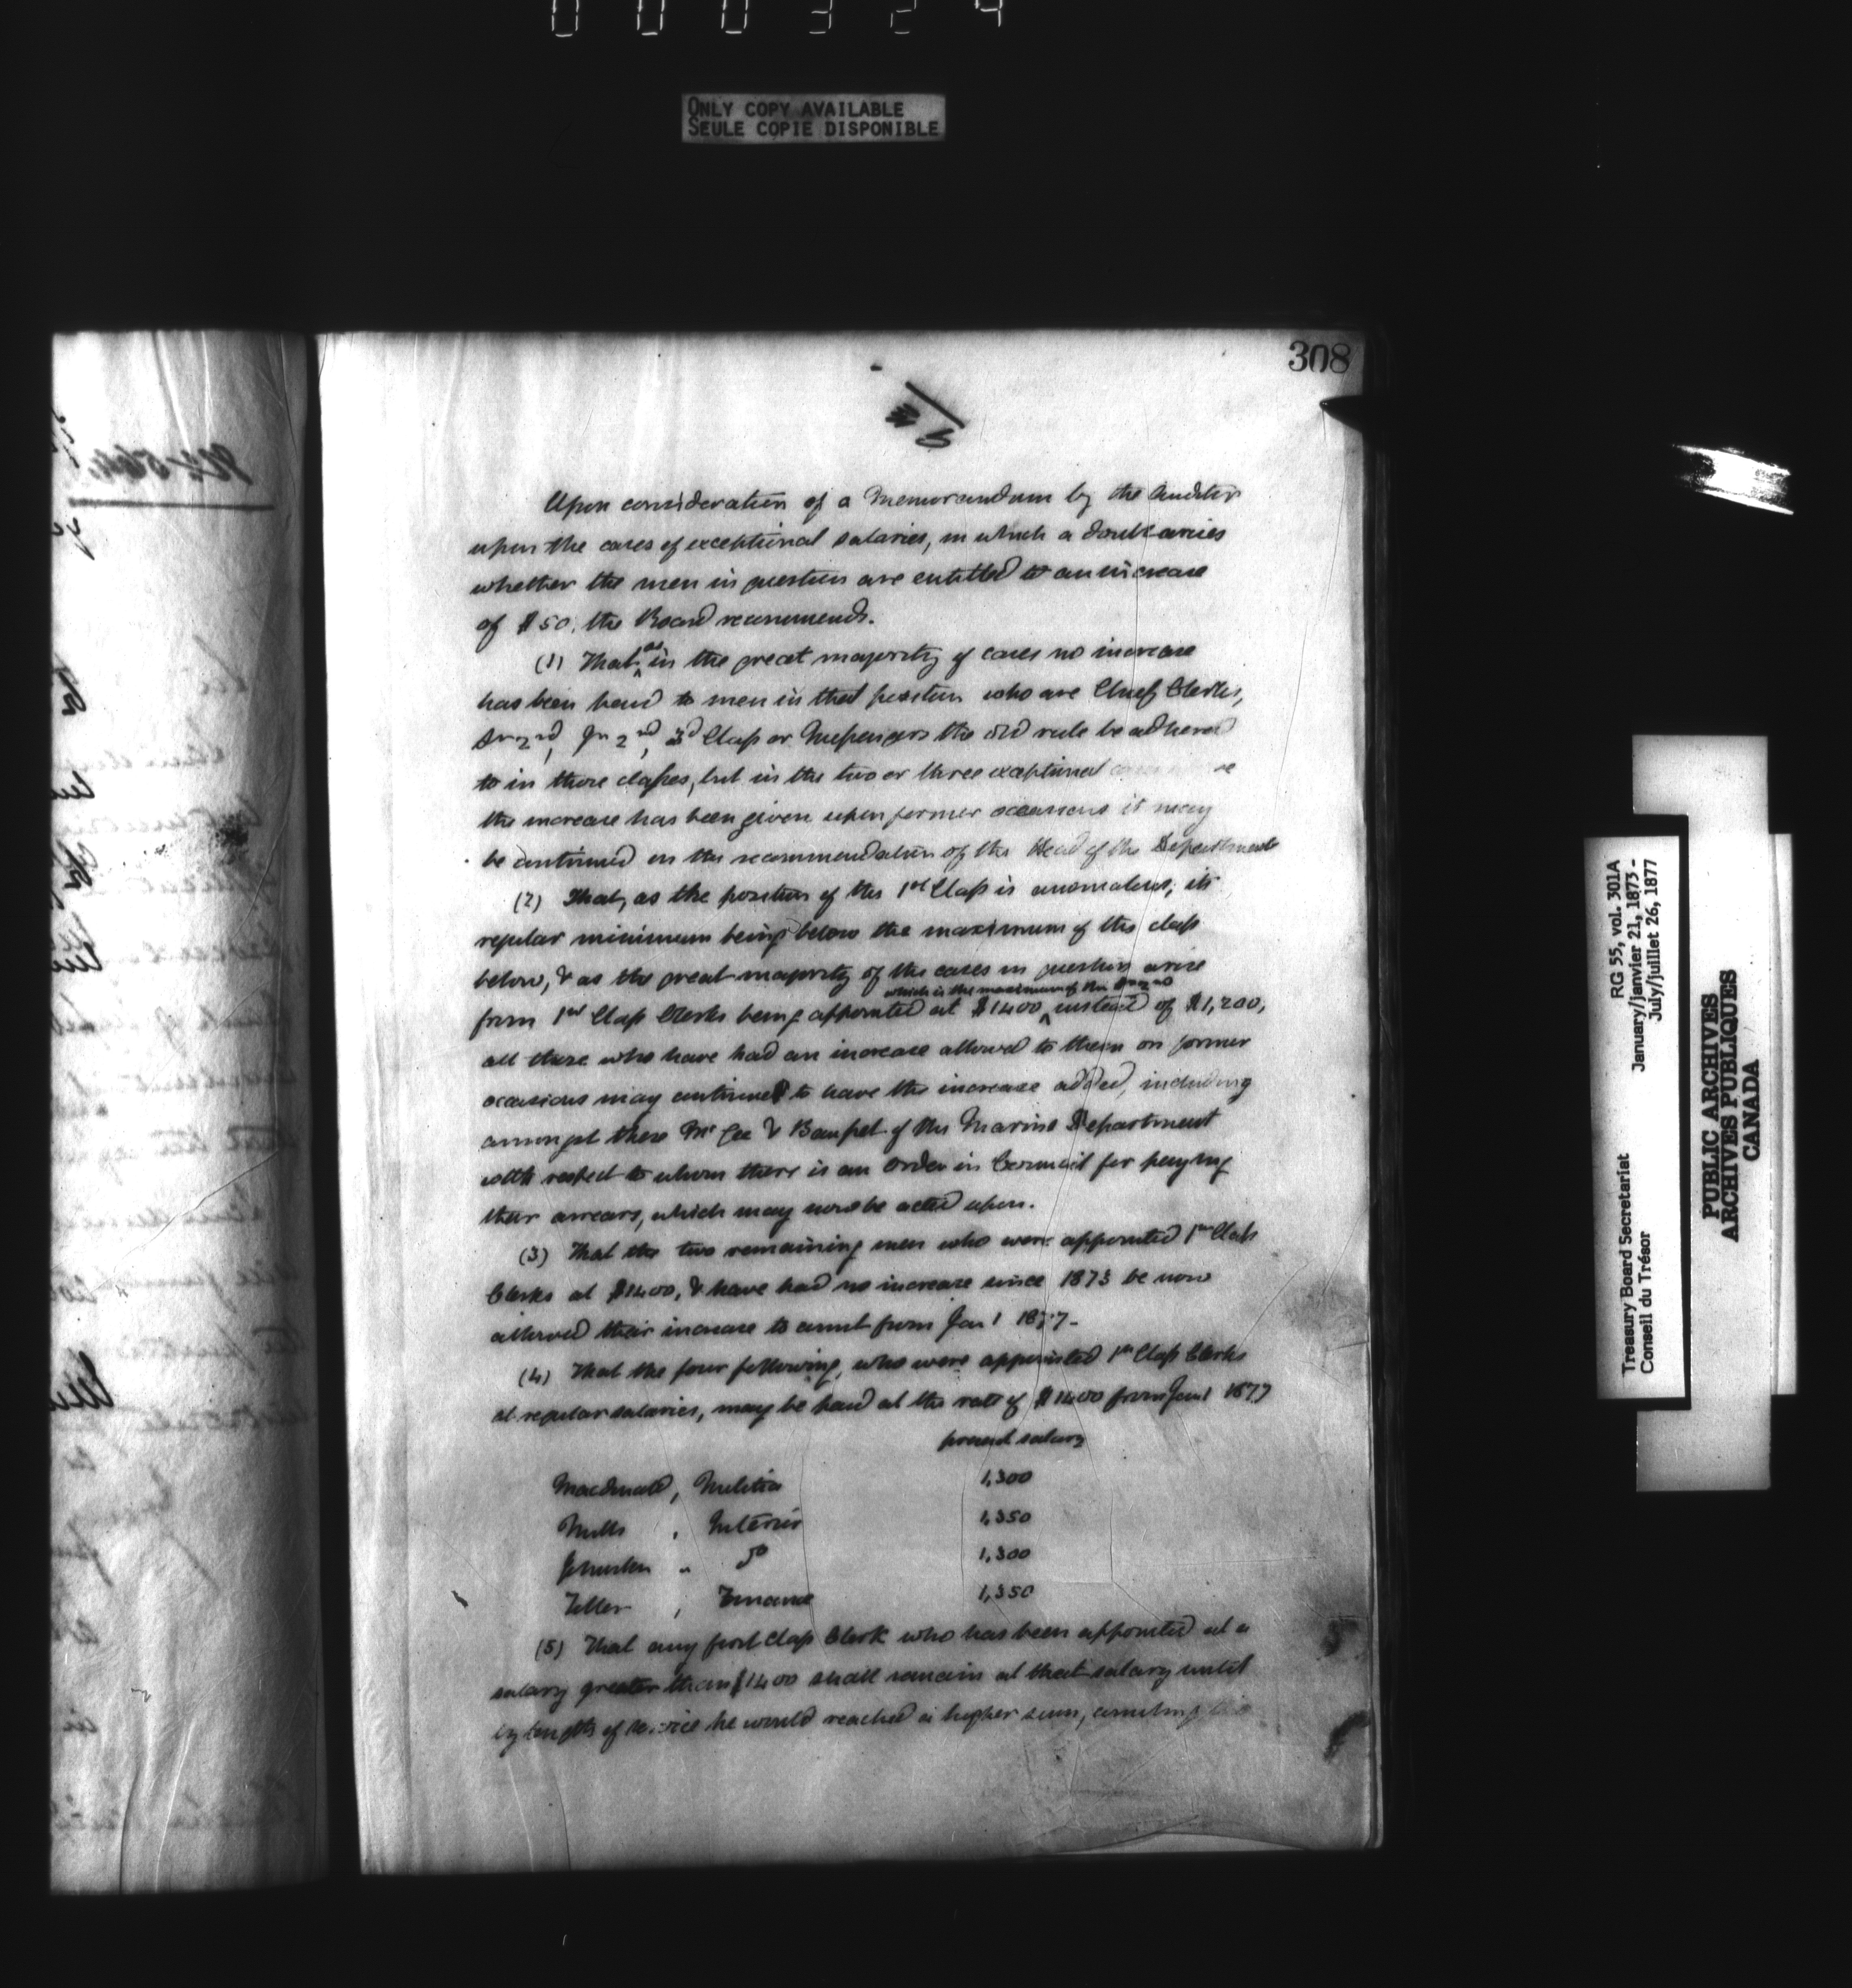 000324
ONLY COPY AVAILABLE
SEULE COPIE DISPONIBLE
308
Upon consideration of a Memorandum by the Auditor
upon the cases of exceptional salaries, in which a doubt arises
whether the men in question are entitled to an increase
of $50, the Board recommends.
(1) That as in the great majority of cases no increase
has been paid to men in that position who are Chief Clerks,
Sr 2nd, Jr 2nd, 3d Class or Messengers the old rule be adhered
to in those classes, but in the two or three exceptional cases where
the increase has been given upon former occasions it may
be continued on the recommendation of the Head of the Department
(2) That, as the position of the 1st Class is anomalous, its
regular minimum being below the maximum of the class
below, & as the great majority of the cases in question arise
which is the maximum of the Sr 2nd
from 1st Class Clerks being appointed at $1400 instead of $1,200,
all those who have had an increase allowed to them on former
occasions may continue to have the increase added, including
amongst these McGee & of the Marine Department
with respect to whom there is an Order in Council for paying
their arrears, which may now be acted upon.
(3) That the two remaining men who were appointed 1st Class
Clerks at $1400, & have had no increase since 1873 be now
allowed their increase to count from Jan 1 1877-
(4) That the four following, who were appointed 1st Class Clerks
at regular salaries, may be paid at the rate of $1400 from Jan 1 1877
present salary
Macdonald, Militia 1,300
Mills , Interior 1,350
Johnston " Do 1,300
Toller , Finance 1,350
(5) That any first Class Clerk who has been appointed at a
salary greater than $1400 shall remain at that salary until
by length of service he would reached a higher sum, counting
RG 55, vol. 301A
January/janvier 21, 1873 -
July/juillet 26, 1877
Treasury Board Secretariat
Conseil du Trésor
PUBLIC ARCHIVES
ARCHIVES PUBLIQUES
CANADA